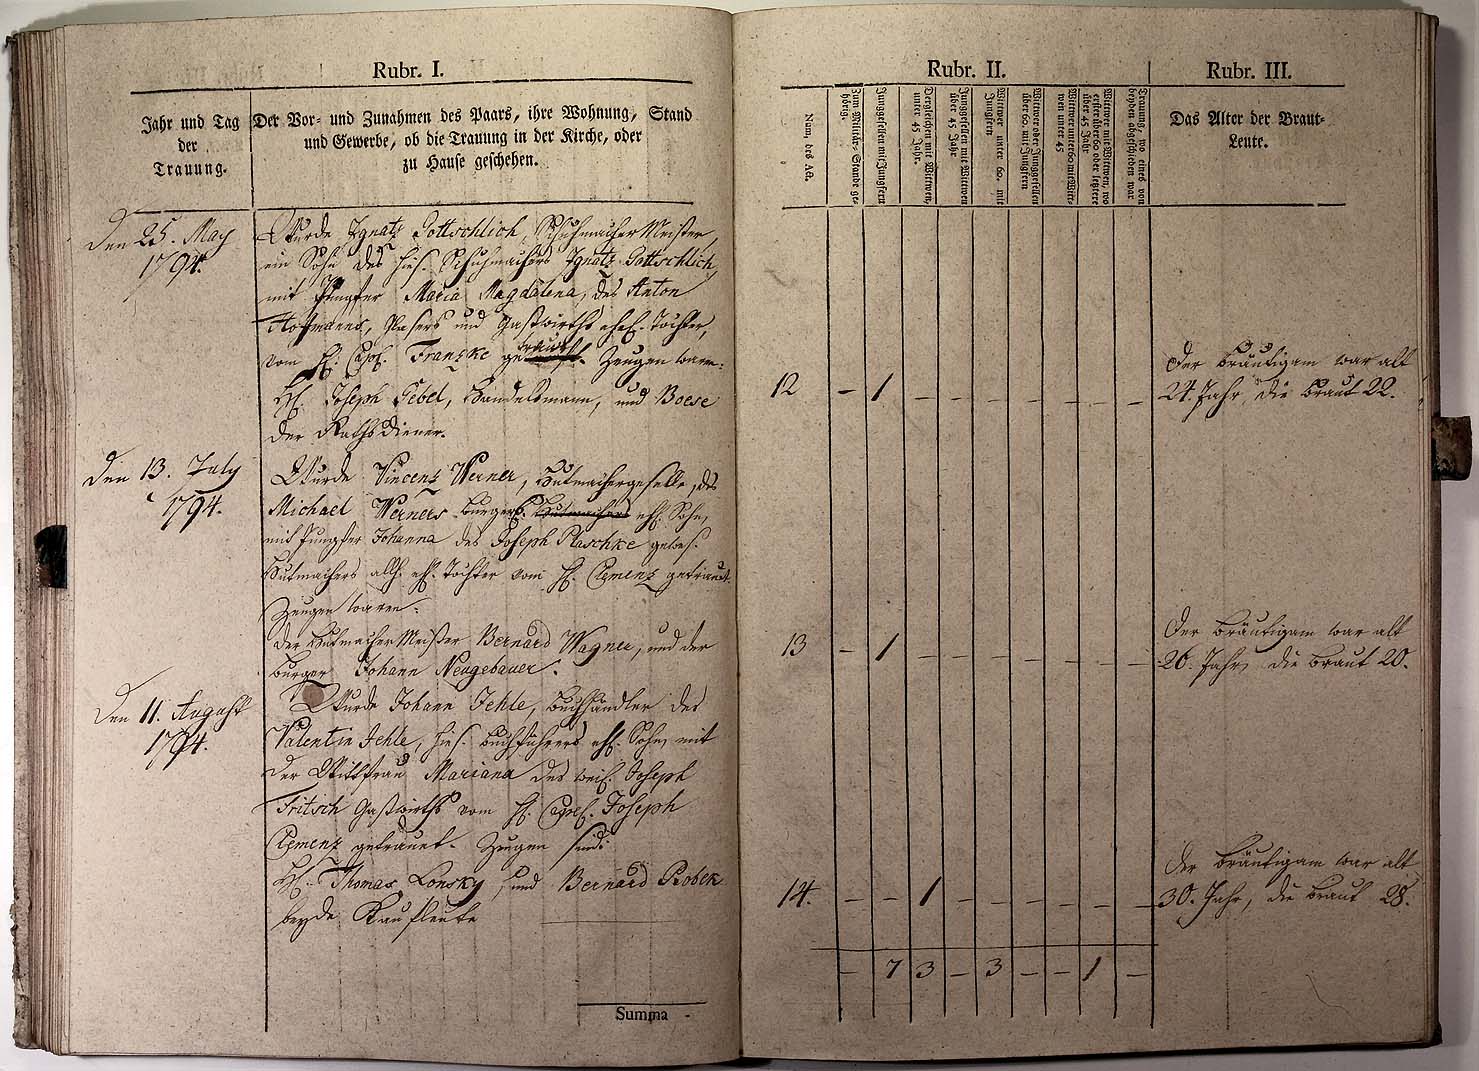 Rubr. I.
Jahr und Tag
der
Trauung.
Der Vor- und Zunahmen des Paars, ihre Wohnung, Stand
und Gewerbe, ob die Trauung in der Kirche, oder
zu Hause geschehen.
Den 25. May
1794.
Wurde Ignatz Gottschlich, Schuhmacher Meister,
ein Sohn des hies. Schuhmachers Ignatz Gottschlich
mit Jungfer Maria Magdalena, des Anton
Hofmanns, Glasers und Gastwirths ehel. Tochter,
vom H. Capl. Franzke getraut. Zeugen waren:
H. Joseph Gebel, Handelsmann, und Boese
der Rathsdiener.
Den 13. July
1794.
Wurde Vincenz Werner, Hutmachergeselle, des
Michael Werners burgerl. Hutmachers ehl. Sohn,
mit Jungfer Johanna des Joseph Plaschke gewes.
Hutmachers allh. ehl. Tochter vom H. Clemenz getraut.
Zeugen waren:
der Hutmacher Meister Bernard Wagner, und der
burger Johann Neugebauer.
Den 11. August
1794.
Wurde Johann Jehle, Buchhändler des
Valentin Jehle, hies. Buchführers ehl. Sohn, mit
der Wittfrau Mariana des weil. Joseph
Fritsch Gastwirths vom H. Capel. Joseph
Clemenz getrauet. Zeugen sind:
H. Thomas Lonsky, und Bernard Bobek
beyde Kaufleute
Summa -
Rubr. II.
Num. des Act.
Zum Militär-Stande gehörig.
Junggesellen mit Jungfern
Dergleichen mit Wittwen, unter 45 Jahr.
Junggesellen mit Wittwen über 45 Jahr
Wittwer unter 60. mit Jungfern
Wittwer oder Junggesellen über 60. mit Jungfern
Wittwer unter 60 mit Wittwen unter 45
Wittwer mit Wittwen, wo ersterer über 60 oder letztere über 45 Jahr
Trauung, wo eines von beyden abgeschieden war
12 – 1 – – – – – – –
13 – 1 – – – – – – –
14. – – 1 – – – – – –
– 7 3 – 3 – – 1 –
Rubr. III.
Das Alter der Braut-
Leute.
Der Bräutigam war alt
24. Jahr, die Braut 22.
Der Bräutigam war alt
26. Jahr, die Braut 20.
Der Bräutigam war alt
30. Jahr, die Braut 28.